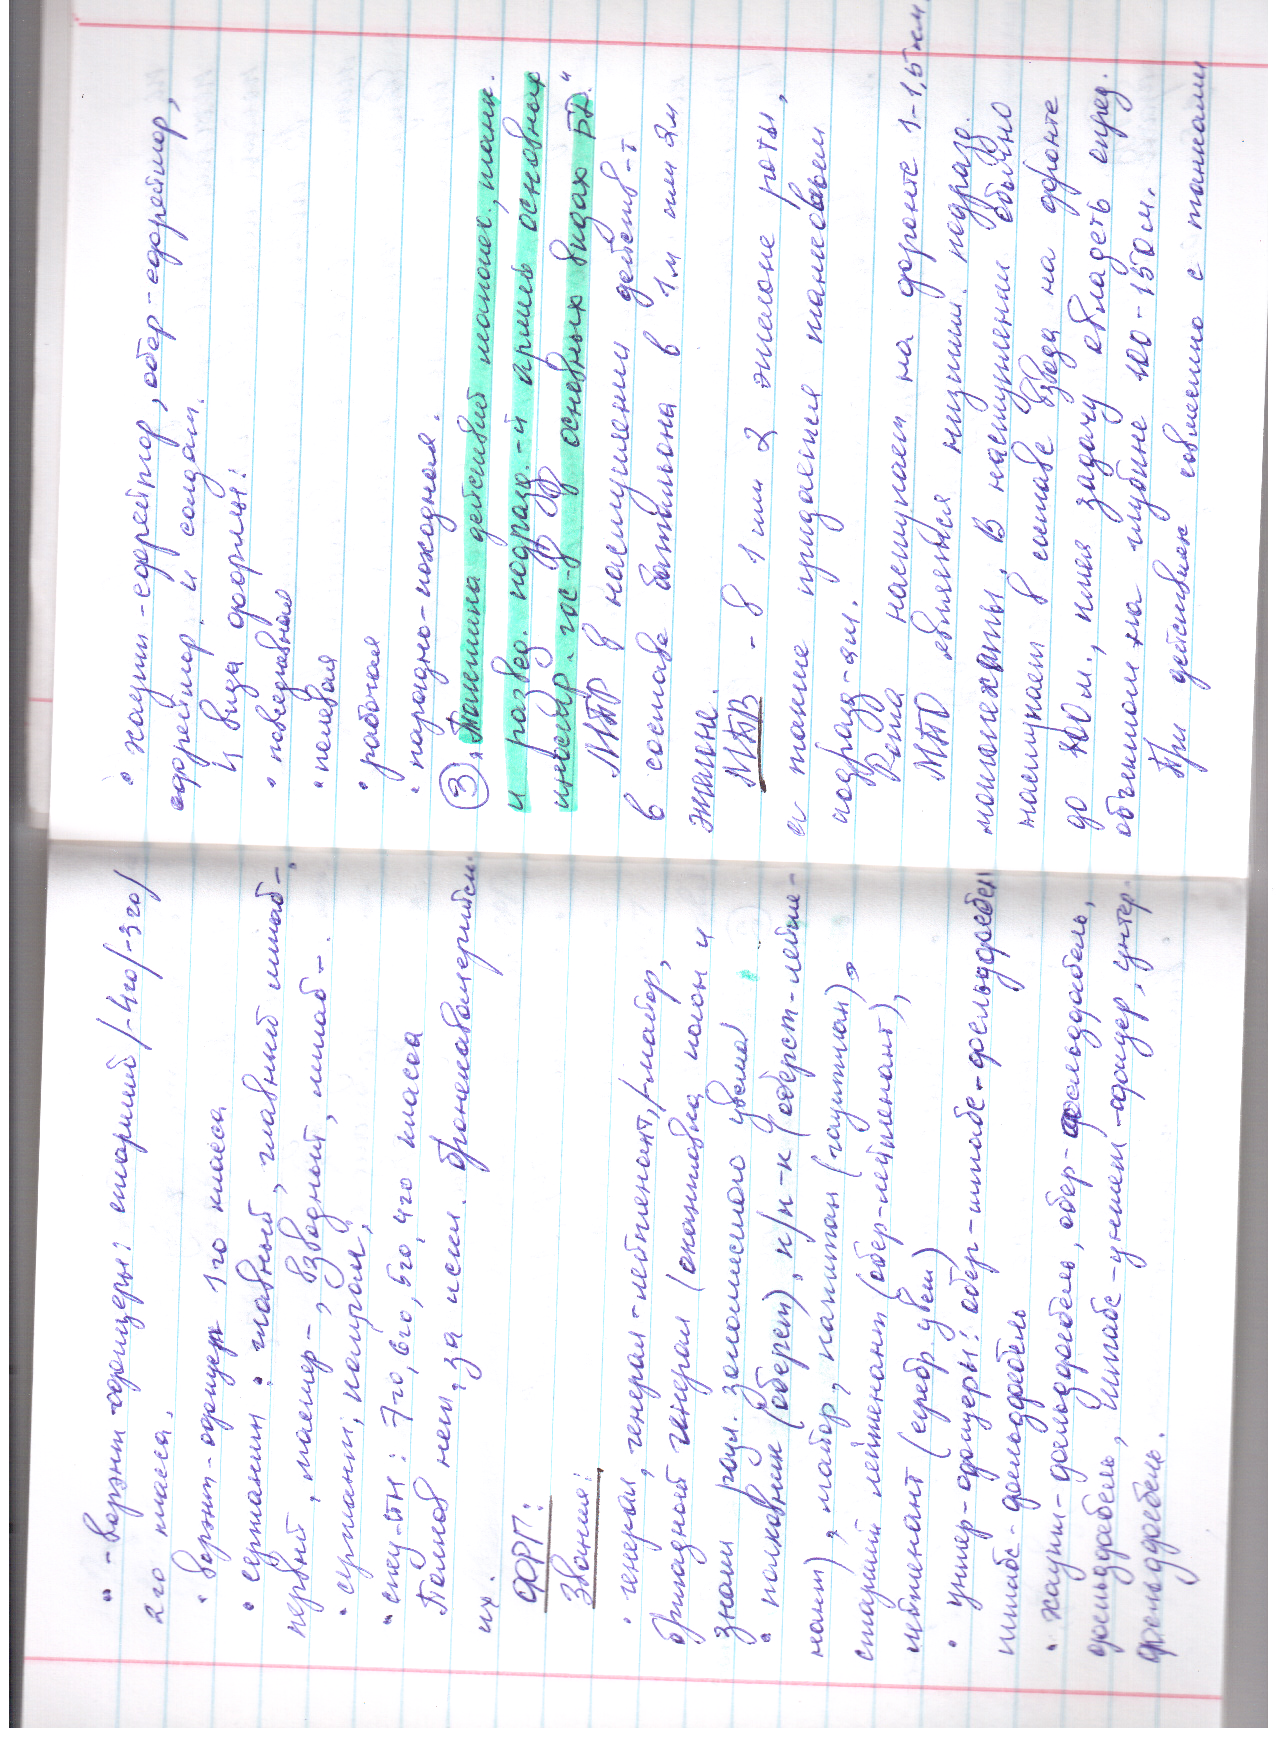 - ворэнт-офицеры: старший /-4го/-3го/
2го класса.
• ворэнт-офицер 1го класса
• сержанты: главный, главный штаб-,
первый, мастер-, взводный, штаб-.
• сержант, капрал,
• спец-ты: 7го, 6го, 5го, 4го класса
Погонов нет, за искл. бронекавалерийск
их.
ФРГ:
Звания:
• генерал, генерал-лейтенант, /-майор,
бригадный генерал (окантовка погон и
знаки разл. золотистого цвета)
• полковник (оберст), п/п-к (оберст-лейте-
нант), майор, капитан (гауптман),
старший лейтенант (обер-лейтенант),
лейтенант (серебр. цвет)
• унтер-офицеры: обер-штабс-фельдфебель
штабс-фельдфебель
• хаупт-фельдфебель, обер-фельдфебель,
фельдфебель, штабс-унтер-офицер, унтер-
фельдфебель.
• хаупт-ефрейтор, обер-ефрейтор,
ефрейтор и солдат.
4 вида формы:
• повседневная
• полевая
• рабочая
• парадно-походная.
③ "Тактика действий мотопех., танк.
и развед. подразд.-й армий основных
иностр. гос-в в основных видах БД."
МПБ в наступлении действ-т
в составе батальона в 1м или 2м
эшелоне.
МПВ - в 1 или 2 эшелоне роты,
а также придается танковым
подразд-ям.
Рота наступает на фронте 1-1,5 км.
МПО является низшим подразд.
мотопехоты. В наступлении обычно
наступает в составе взвода на фронте
до 100 м., имея задачу овладеть опред.
объектом на глубине 100-150 м.
При действиях совместно с танками